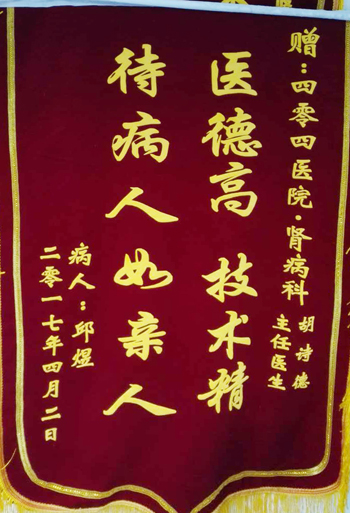 赠：四零四医院·肾病科
胡诗德
主任医生
医德高 技术精
待病人如亲人
病人：邱煜
二零一七年四月二日